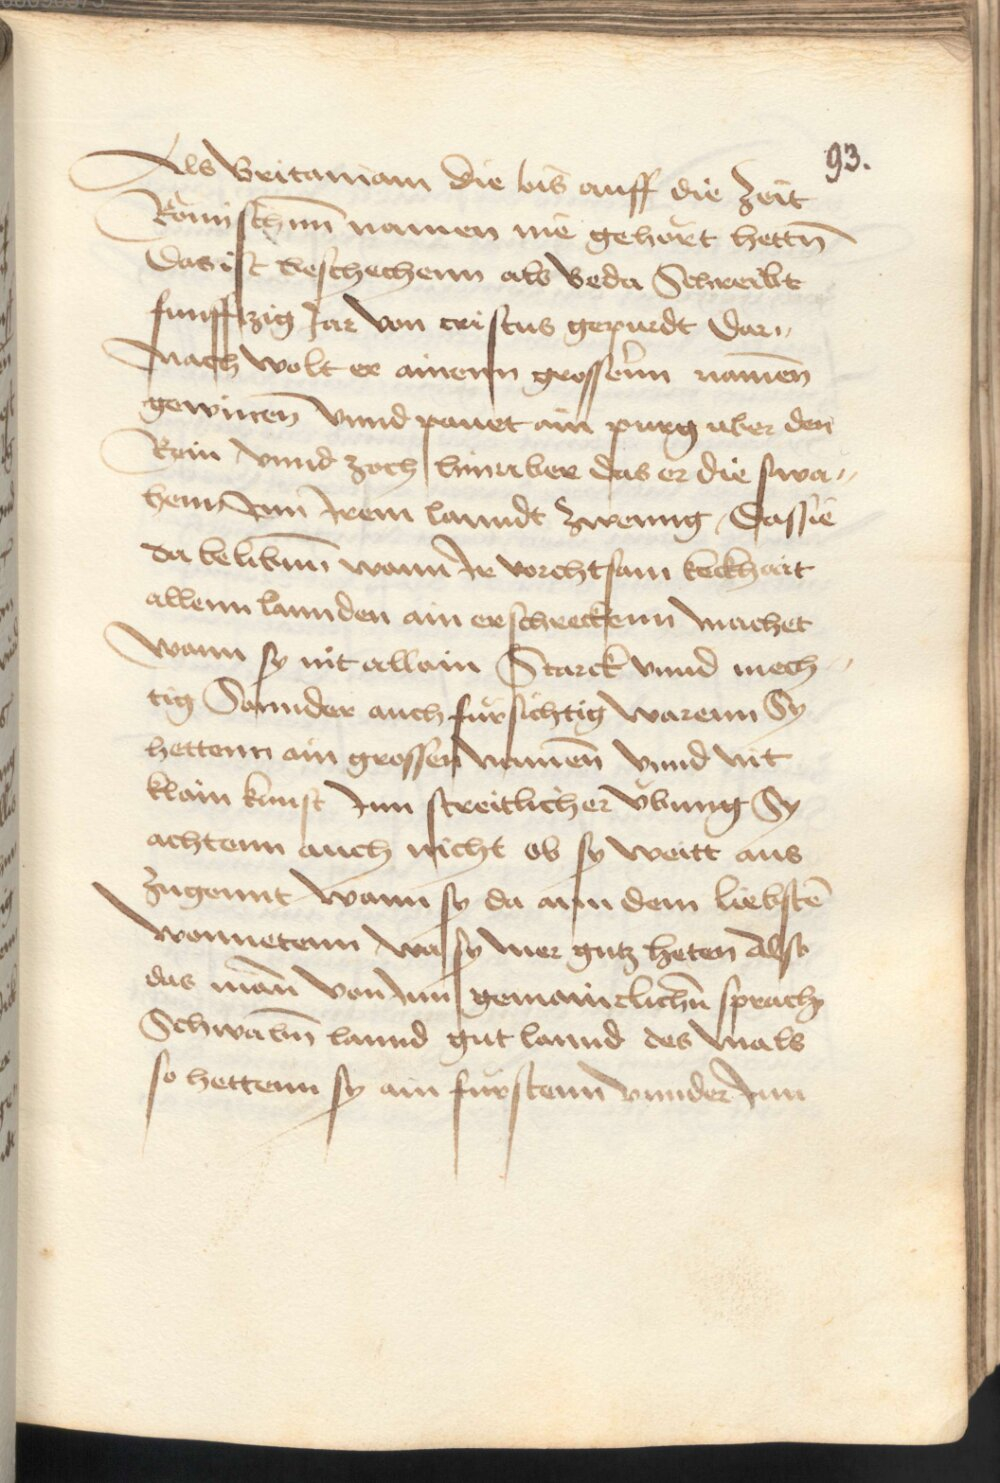 93.
Als Britaniam die bis auff die Zeit
Römischnn̄ namen nie gehört hettn̄
Das ist beschechenn als Beda Schreibt
funffzig Jar von cristus gepurdt Dar„
nach wolt er ainenn grossenn namen̄
gewinen̄ vnnd pauet ain purg vber den
Rein vnnd zoch hinuber das er die swa„
henn Inn Irem lanndt Zwenng Dassie
da belibnn̄ wann Ir vorchtsam keckhait
allenn lannden ain erschreckenn machet
wann sy nit allain Starck vnnd mech„
tig Sonnder auch fürsichtig warenn Sy
hettenn ain grossen namen̄ vnnd nit
klain kunst Inn streitlicher vbung Sy
achtenn auch nicht ob sy weitt aus
Zugennt wann sy da ann dem liebstē
wonnetenn wa sy mer gutz heten Also
das man̄ von Inn gemainclichn̄ sprach
Schwabn̄ lannd gut lannd des mals
so hettenn sy ain fürstenn vnnder Inn